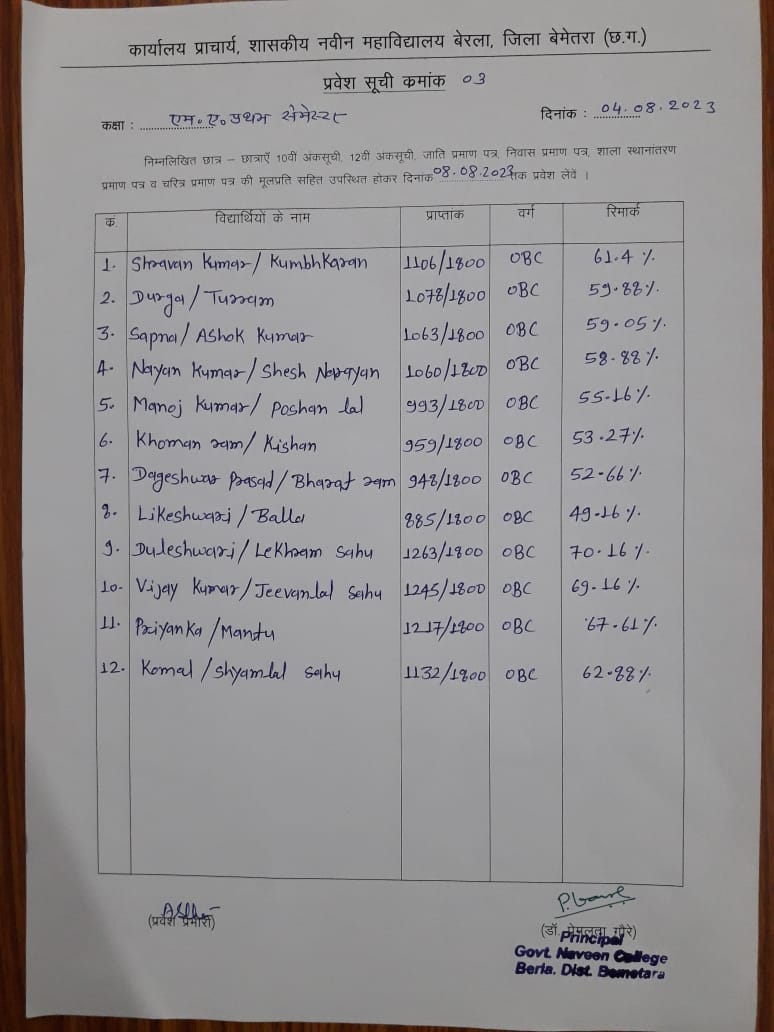 कार्यालय प्राचार्य, शासकीय नवीन महाविद्यालय बेरला, जिला बेमेतरा (छ.ग.)
प्रवेश सूची कमांक 03
कक्षा : एम.ए.प्रथम सेमेस्टर दिनांक : 04.08.2023
निम्नलिखित छात्र – छात्राऍं 10वीं अंकसूची, 12वीं अंकसूची, जाति प्रमाण पत्र, निवास प्रमाण पत्र, शाला स्थानांतरण
प्रमाण पत्र व चरित्र प्रमाण पत्र की मूलप्रति सहित उपस्थित होकर दिनांक 08.08.2023 तक प्रवेश लेवें ।
कं. विद्यार्थियों के नाम प्राप्तांक वर्ग रिमार्क
1. Shravan Kumar/ Kumbhkaran 1106/1800 OBC 61.4 %
2. Durga / Turram 1078/1800 OBC 59.88%
3. Sapna/ Ashok Kumar 1063/1800 OBC 59.05%
4. Nayan Kumar/ Shesh Narayan 1060/1800 OBC 58.88%
5. Manoj Kumar/ Poshan lal 993/1800 OBC 55.16%
6. Khoman ram/ Kishan 959/1800 OBC 53.27%
7. Dageshwar Prasad/ Bharat ram 948/1800 OBC 52.66%
8. Likeshwari / Balla 885/1800 OBC 49.16%
9. Duleshwari/ Lekhram Sahu 1263/1800 OBC 70.16%
10. Vijay Kumar/ Jeevanlal Sahu 1245/1800 OBC 69.16%
11. Priyanka /Mantu 1217/1800 OBC 67.61%
12. Komal / Shyamlal Sahu 1132/1800 OBC 62.88%
(प्रवेश प्रभारी) (डॉ. प्रेमलता गौरे)
Principal
Govt. Naveen College
Berla. Dist. Bemetara